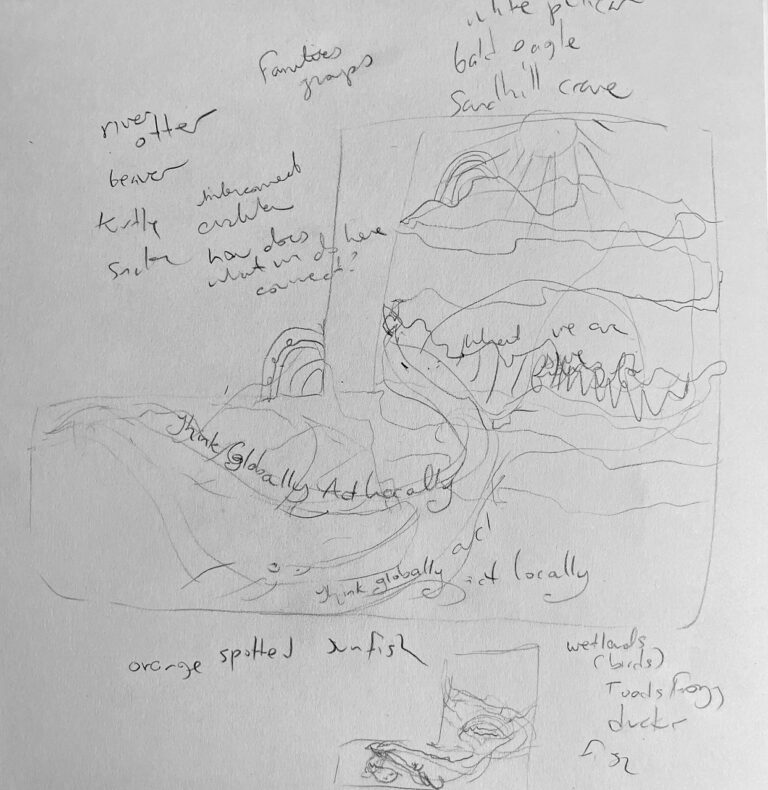 white pelican
bald eagle
Sandhill crane
Families
groups
river
otter
beaver
interconnect
how does
what we do here
connect?
what we are
Think Globally Act Locally
act
think globally
act locally
orange spotted sunfish
wetlands
(birds)
Toads frogs
ducks
fish